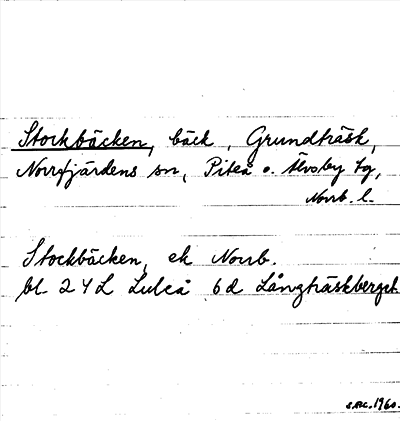 Stockbäcken, bäck, Grundträsk,
Norrfjärdens sn, Piteå o. Älvsby tg,
Norrb. l.
Stockbäcken, ek Norrb.
bl. 24L Luleå 6d Långträskberget
1960.